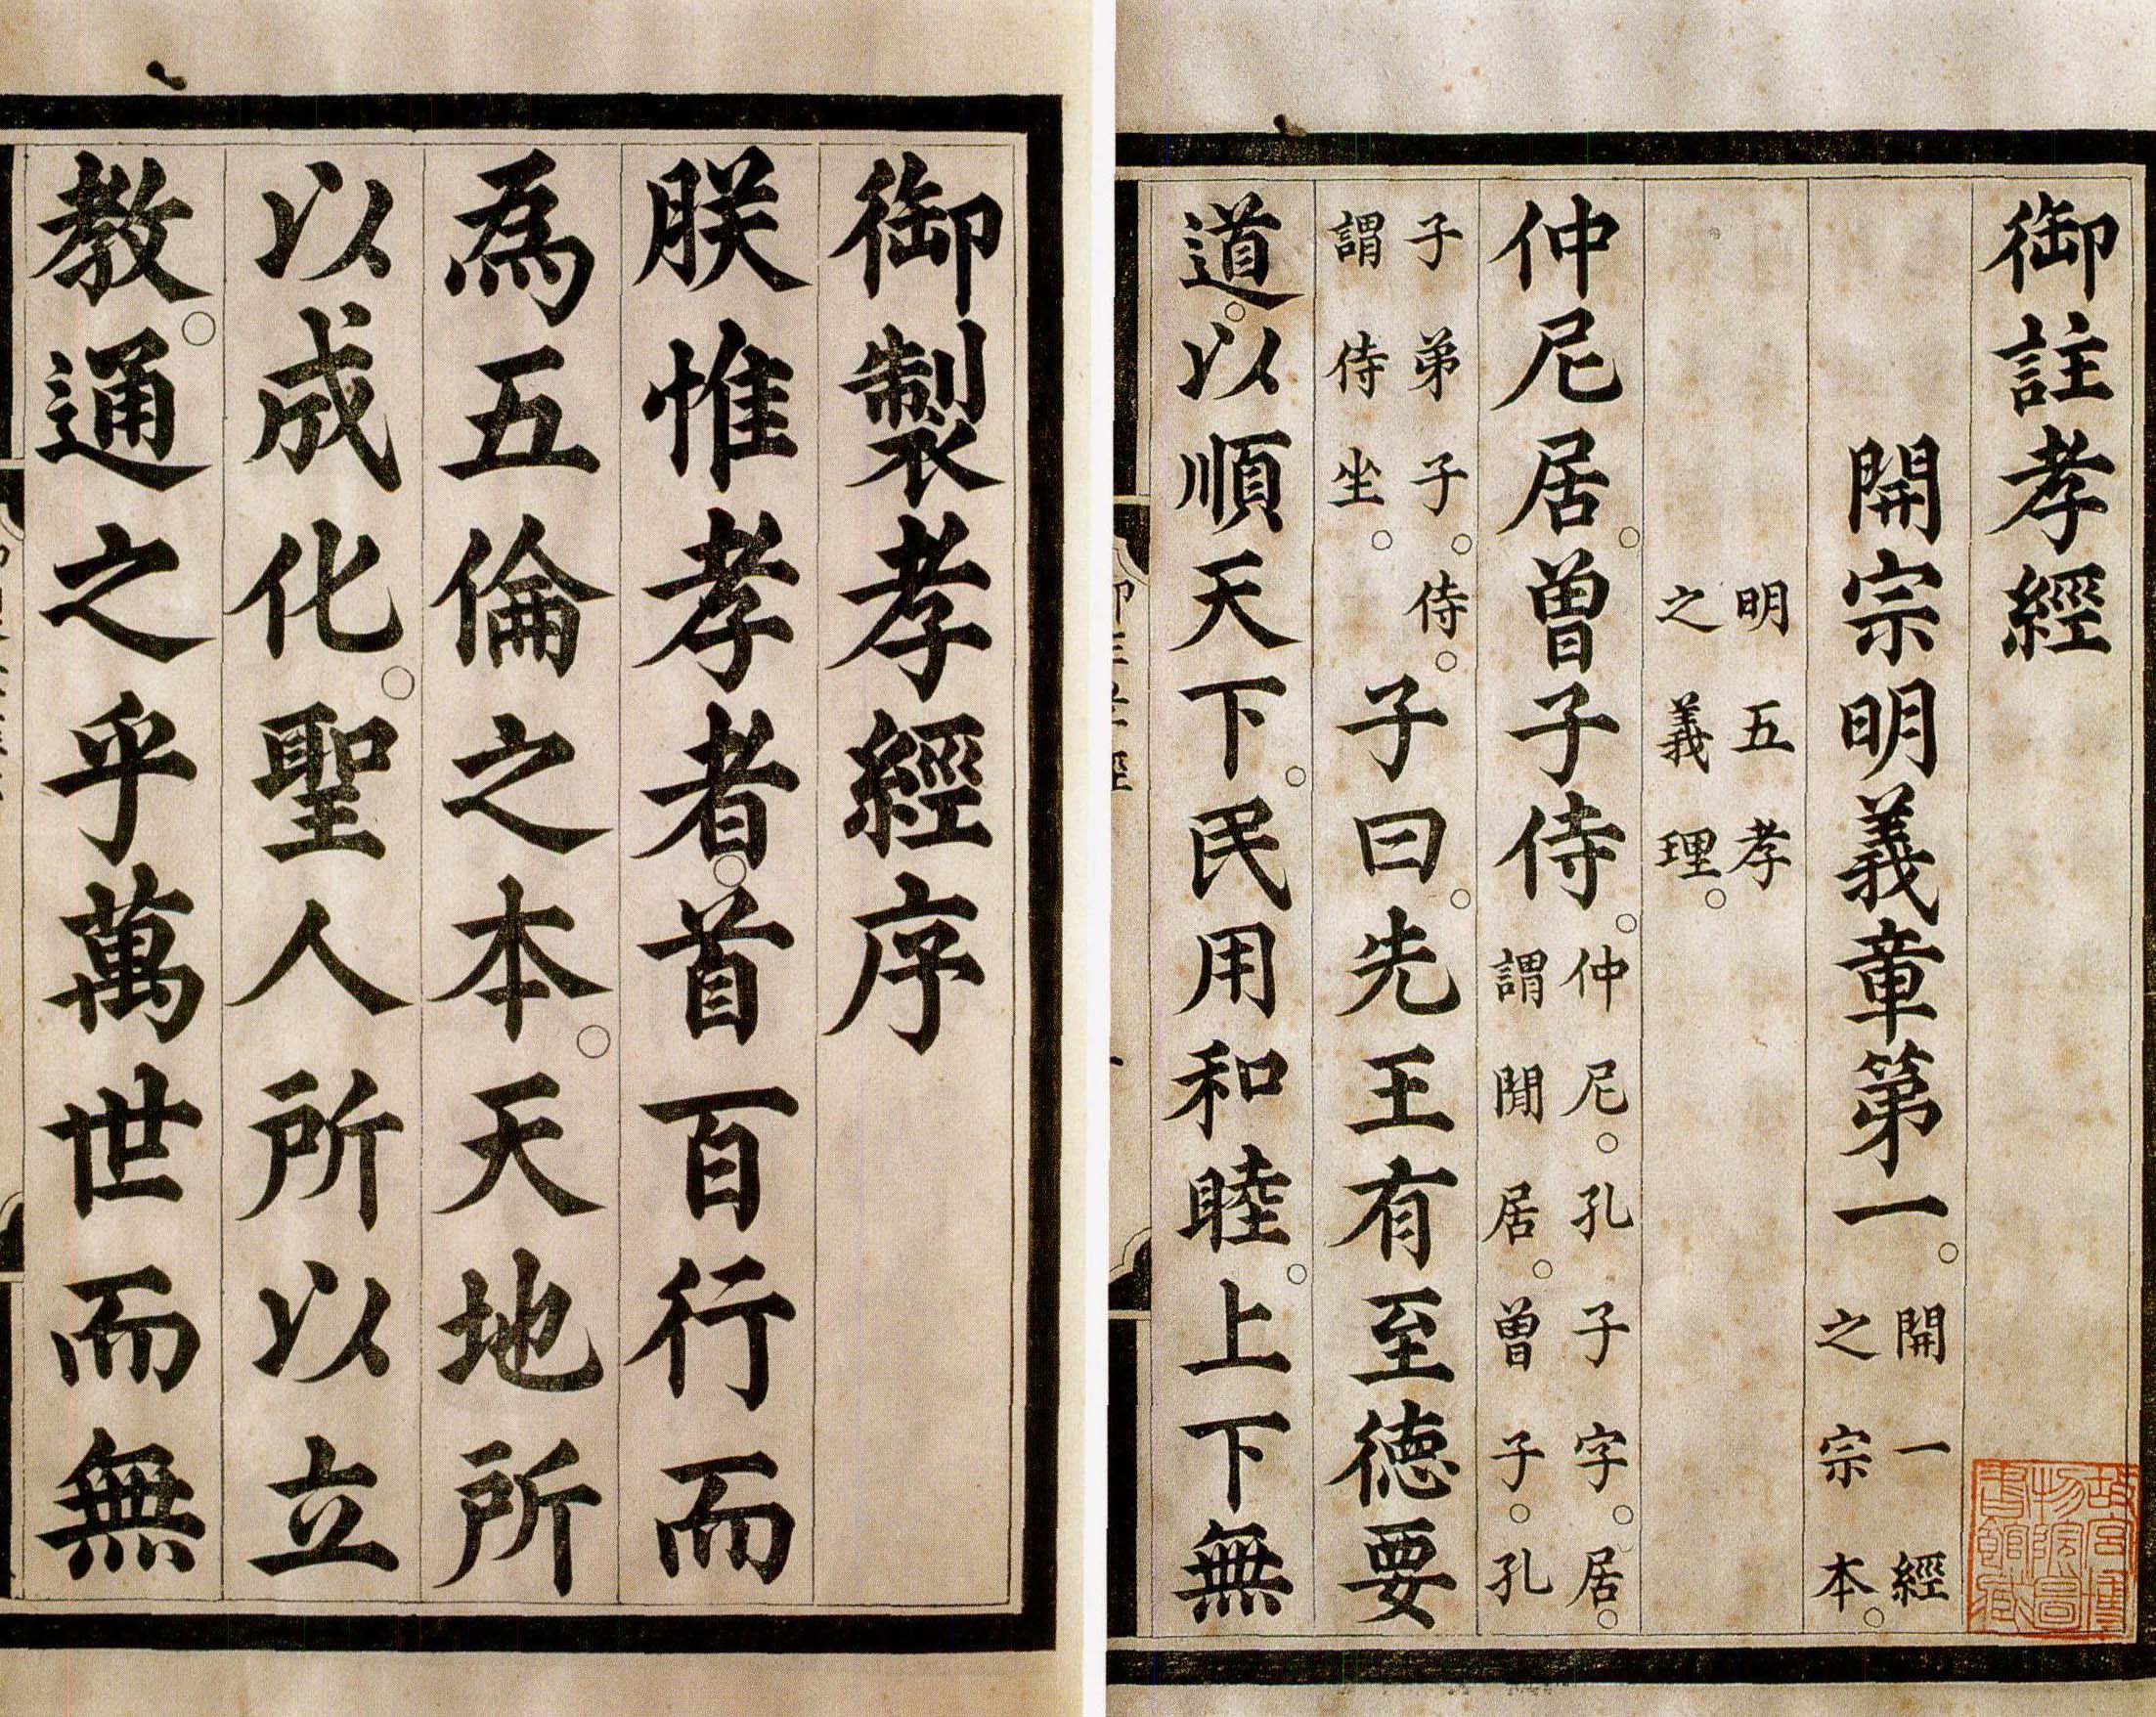 御註孝經
開宗明義章第一。開一經之宗本。
明五孝之義理。
仲尼居。曾子侍。仲尼。孔子字。居。謂閒居。曾子。孔
子弟子。侍。謂侍坐。子曰。先王有至德要
道。以順天下。民用和睦。上下無
御製孝經序
朕惟孝者。首百行而
為五倫之本。天地所
以成化。聖人所以立
教。通之乎萬世而無